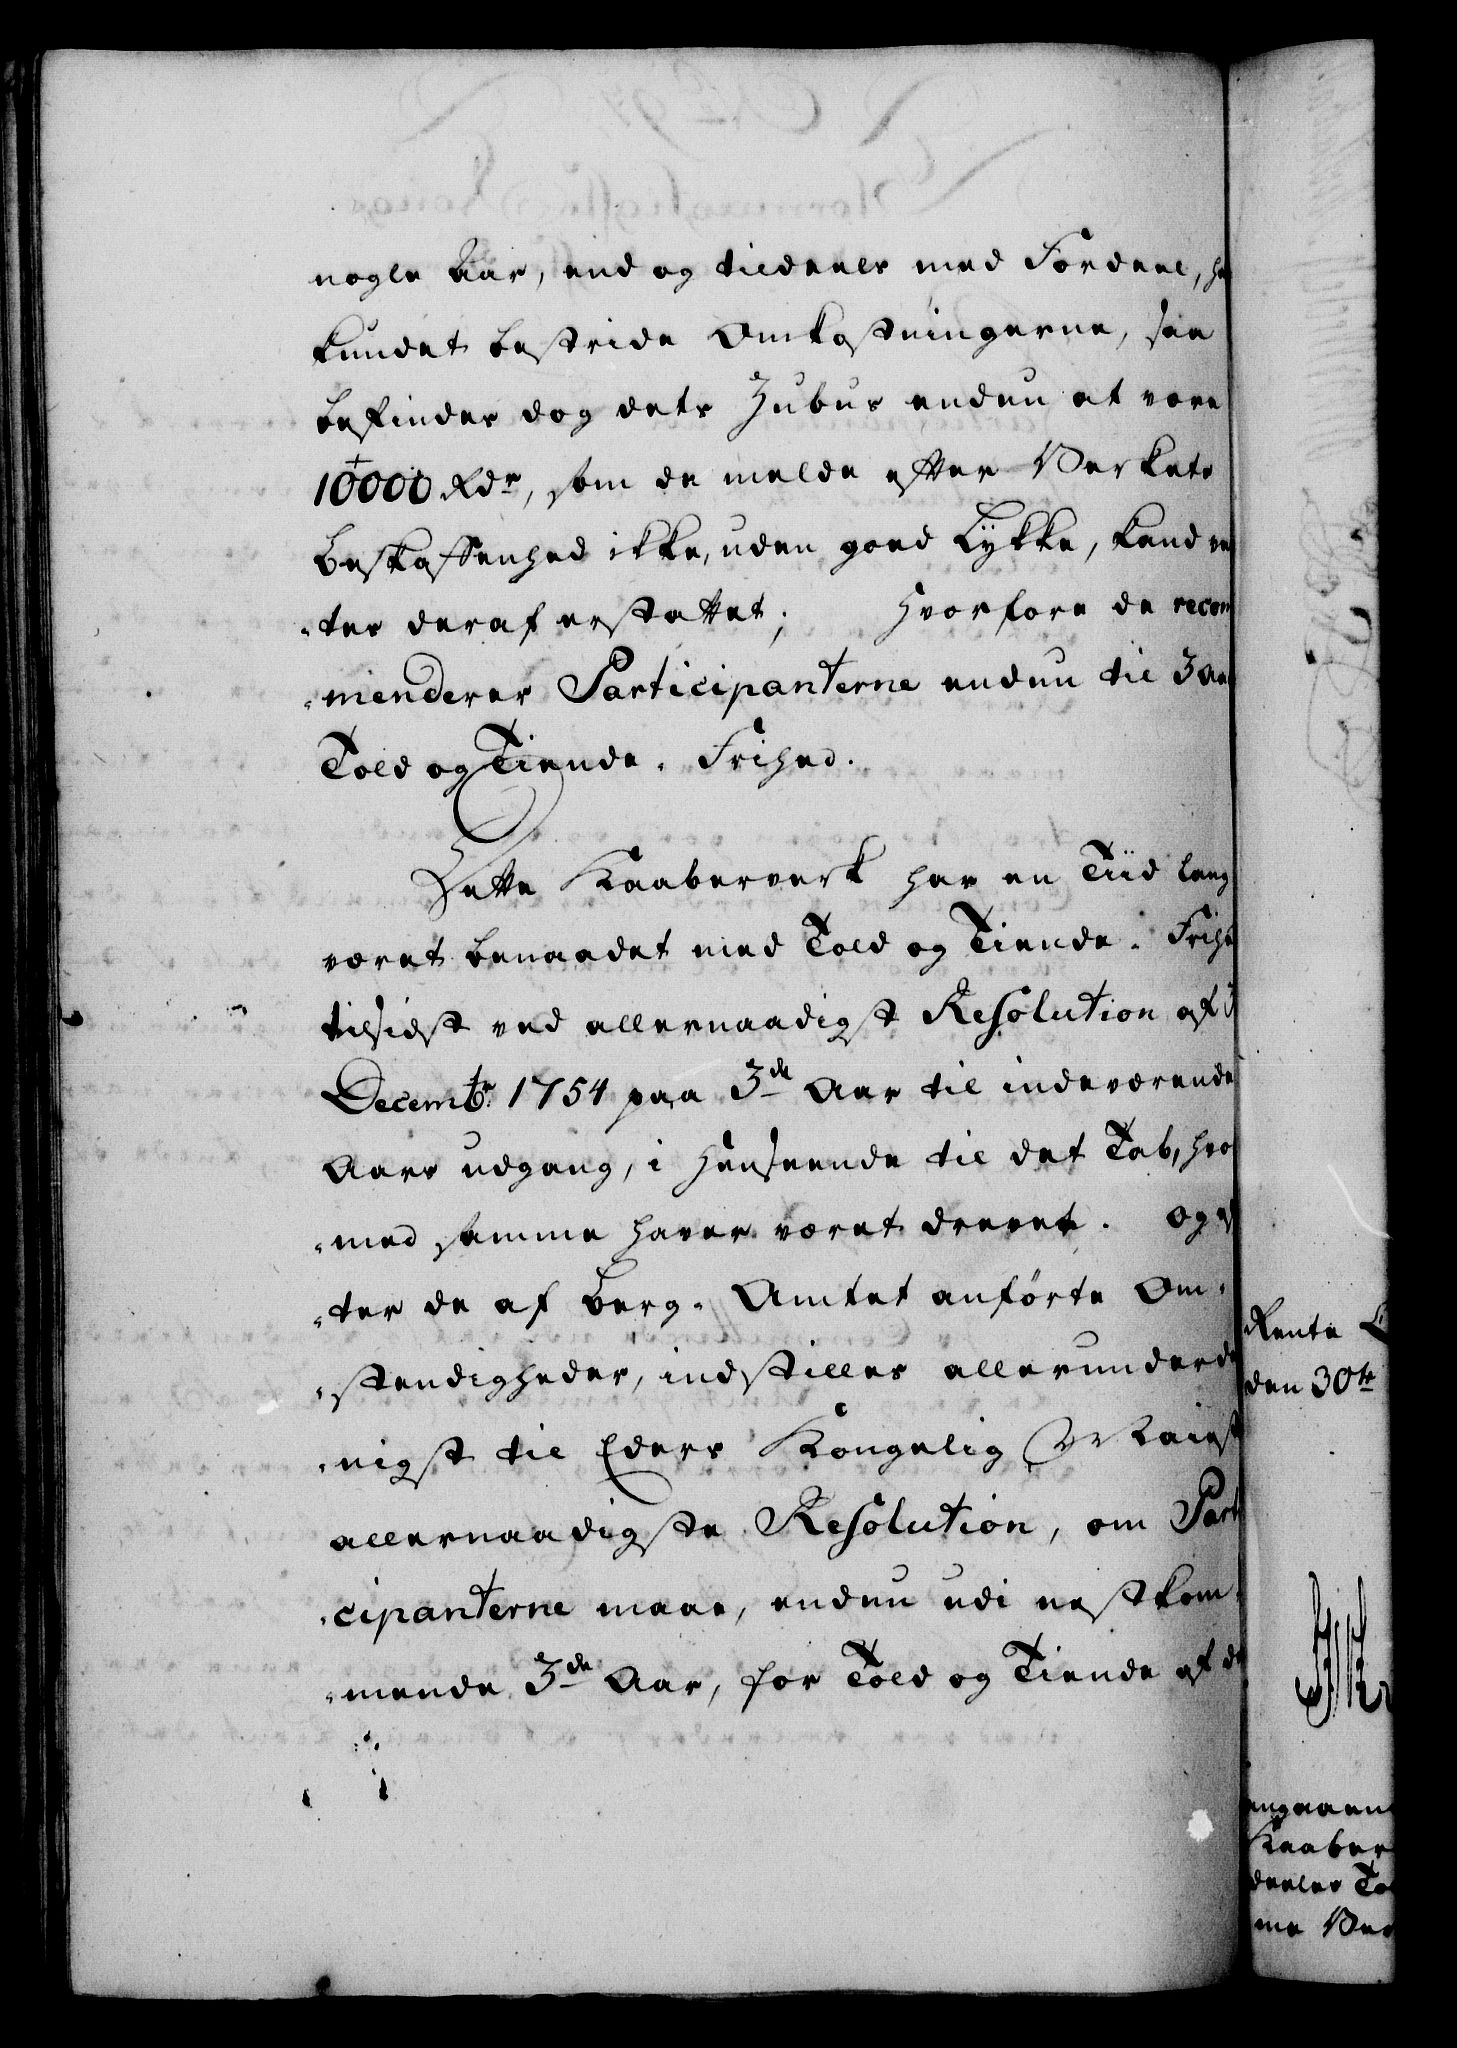 nogle Aar, end og tildeels med Fordeel, ha
kundet bestride Omkostningerne, saa
befindes dog dets Zubus endnu at være
10000 Rdr, som de melde efter Verkets
Beskaffenhed ikke, uden goed Lykke, kand ve
-tes deraf erstattet; Hvorfore de recom
-menderer Participanterne endnu til 3 Aa
Told og Tiende-Frihed.
Dette Kaaberverk har en Tiid lang
været benaadet med Told og Tiende-Frihe
tilsidst ved allernaadigst Resolution af
Decembr. 1754 paa 3de Aar til indeværende
Aars udgang, i Henseende til det Tab, hvo
-med samme haver været drevet. Og ef
-ter de af Berg-Amtet anførte Om-
-stendigheder, indstilles allerunderda
-nigst til Eders Kongelig Maiest
allernaadigste Resolution, om Parti
-cipanterne maae, endnu udi nestkom-
-mende 3de Aar, for Told og Tiende af de
Rente
den 30te
angaaen
Kaaber
deeles To
me Ver